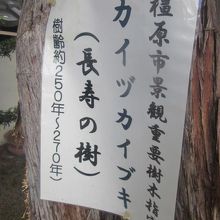 橿原市景観重要樹木指
カイヅカイブキ
(長寿の樹)
樹齢約250年~270年